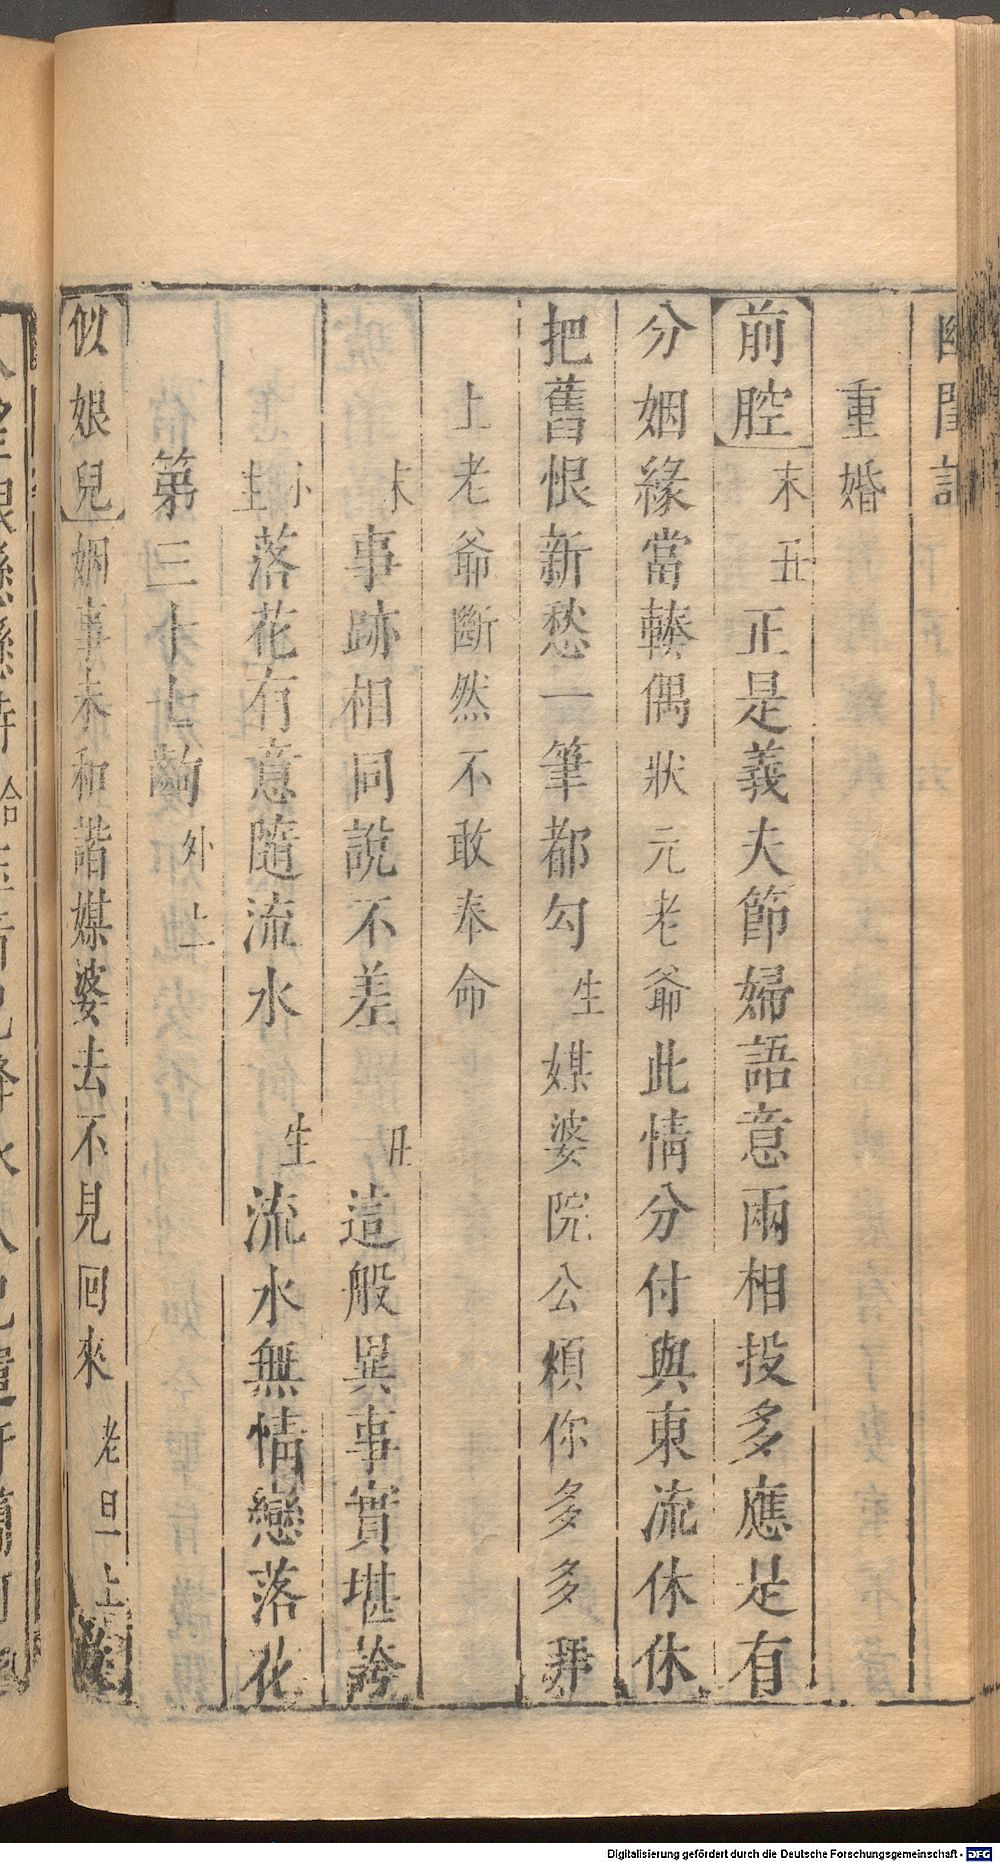 幽閨記
重婚
前腔 末 丑 正是義夫節婦語意兩相投多應是有
分姻緣當輳偶狀元老爺此情分付與東流休休
把舊恨新愁一筆都勾 生 媒婆院公煩你多多拜
上老爺斷然不敢奉命
末 事跡相同說不差 丑 這般異事實堪誇
小生 落花有意隨流水 生 流水無情戀落花
第三十七齣 外上
似娘兒 姻事未和諧媒婆去不見回來 老旦上
Digitalisierung gefördert durch die Deutsche Forschungsgemeinschaft - DFG